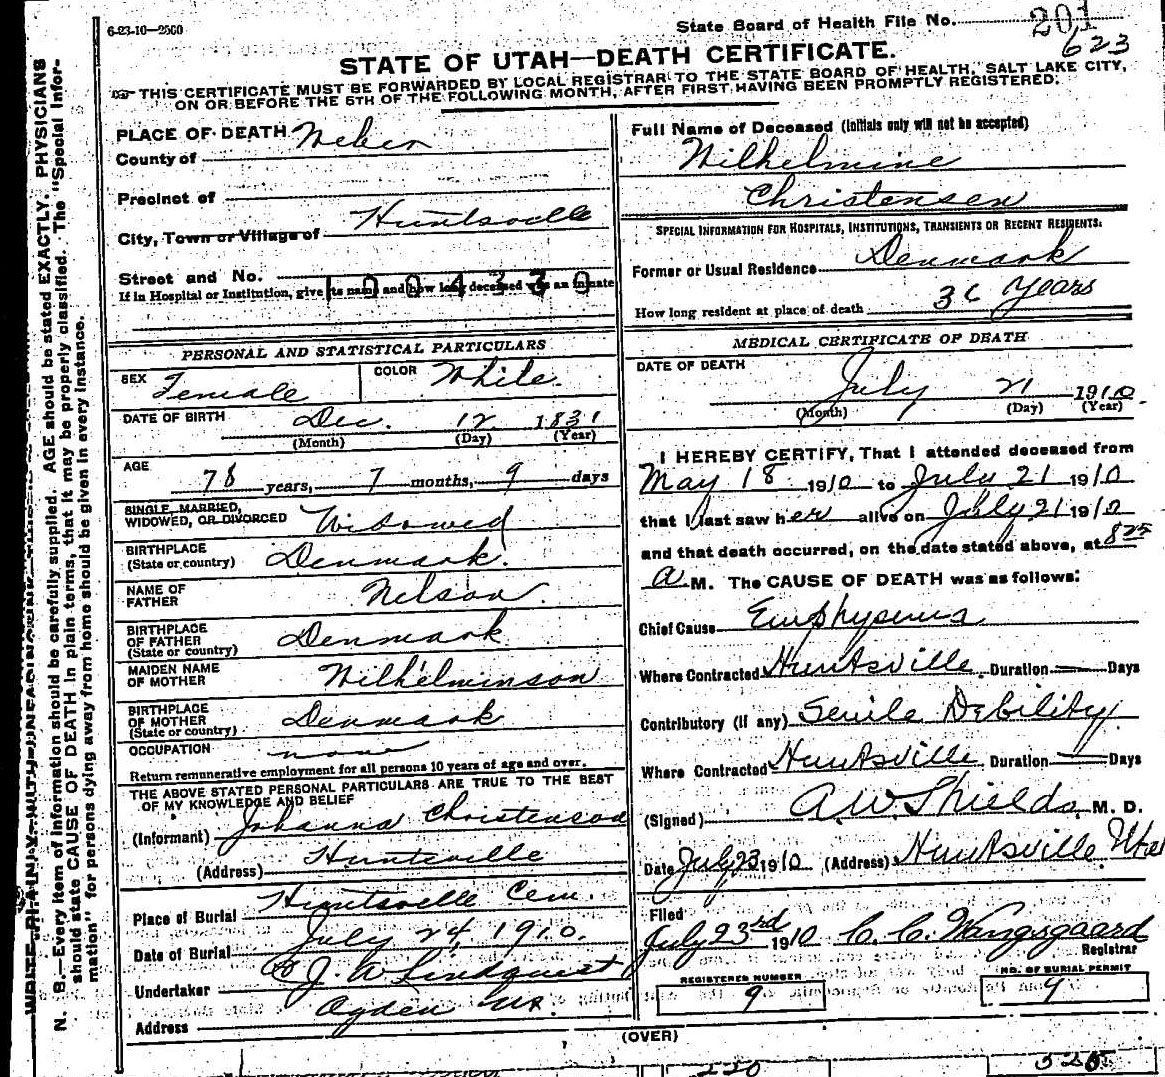 6-23-10—2500
State Board of Health File No. 201
623
STATE OF UTAH—DEATH CERTIFICATE.
THIS CERTIFICATE MUST BE FORWARDED BY LOCAL REGISTRAR TO THE STATE BOARD OF HEALTH, SALT LAKE CITY,
ON OR BEFORE THE 5TH OF THE FOLLOWING MONTH, AFTER FIRST HAVING BEEN PROMPTLY REGISTERED.
PLACE OF DEATH
County of Weber
Precinct of
City, Town or Village of Huntsville
Street and No.
If in Hospital or Institution, give its name and how long deceased was an inmate
1004330
PERSONAL AND STATISTICAL PARTICULARS
SEX Female COLOR White.
DATE OF BIRTH Dec. 12 1831
(Month) (Day) (Year)
AGE
78 years, 7 months, 9 days
SINGLE, MARRIED,
WIDOWED, OR DIVORCED Widowed
BIRTHPLACE
(State or country) Denmark.
NAME OF
FATHER Nelson.
BIRTHPLACE
OF FATHER
(State or country) Denmark
MAIDEN NAME
OF MOTHER Wilhelminson
BIRTHPLACE
OF MOTHER
(State or country) Denmark
OCCUPATION none
Return remunerative employment for all persons 10 years of age and over.
THE ABOVE STATED PERSONAL PARTICULARS ARE TRUE TO THE BEST
OF MY KNOWLEDGE AND BELIEF
(Informant) Johanna Christenson
(Address) Huntsville
Place of Burial Huntsville Cem.
Date of Burial July 24, 1910.
Undertaker J. W. Lindquist
Address Ogden Ut.
Full Name of Deceased (Initials only will not be accepted)
Wilhelmine
Christensen
SPECIAL INFORMATION FOR HOSPITALS, INSTITUTIONS, TRANSIENTS OR RECENT RESIDENTS:
Former or Usual Residence Denmark
How long resident at place of death 36 Years
MEDICAL CERTIFICATE OF DEATH
DATE OF DEATH
July 21 1910.
(Month) (Day) (Year)
I HEREBY CERTIFY, That I attended deceased from
May 18 1910 to July 21 1910
that I last saw her alive on July 21 1910
and that death occurred, on the date stated above, at 825
a M. The CAUSE OF DEATH was as follows:
Chief Cause Emphysema
Where Contracted Huntsville. Duration — Days
Contributory (if any) Senile Debility
Where Contracted Huntsville Duration — Days
(Signed) A.W. Shields, M. D.
Date July 23 1910 (Address) Huntsville Utah
Filed
July 23rd 1910 C. C. Wangsgaard
Registrar
REGISTERED NUMBER
9
NO. OF BURIAL PERMIT
4
(OVER)
N. B.—Every item of information should be carefully supplied. AGE should be stated EXACTLY. PHYSICIANS
should state CAUSE OF DEATH in plain terms, that it may be properly classified. The "Special Infor-
mation" for persons dying away from home should be given in every instance.